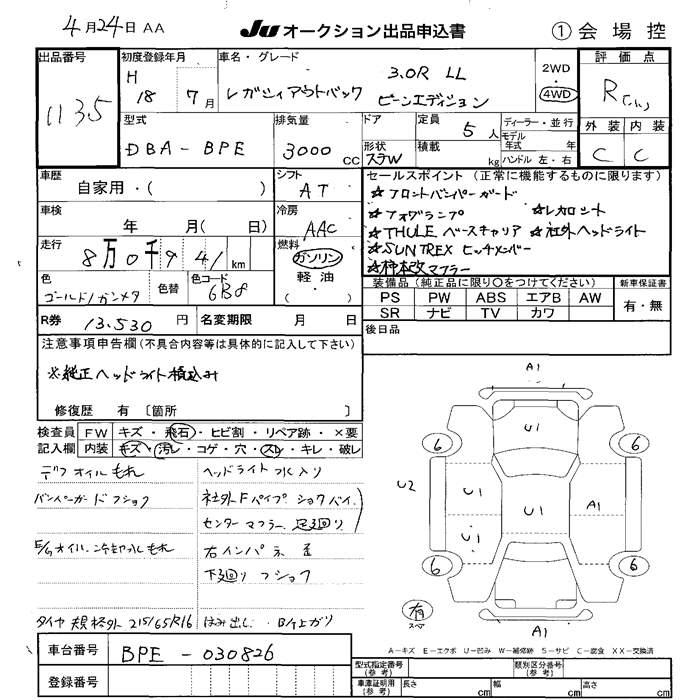 4月24日 AA
JU オークション出品申込書
① 会場控
出品番号
1135
初度登録年月
H 18 7月
車名・グレード
3.0R LL
レガシィアウトバック ビーンエディション
2WD
4WD
評価点
R
外装 内装
C C
型式
DBA-BPE
排気量
3000 cc
ドア
形状
ステW
定員
5人
積載
kg
ディーラー・並行
モデル年式 年
ハンドル 左・右
車歴
自家用・( )
シフト
AT
車検
年 月( 日)
冷房
AAC
走行
8万0千9 41 km
燃料
ガソリン
軽油
( )
色
ゴールド/ガンメタ
色替
色コード
6B8
R券
13,530 円
名変期限 月 日
セールスポイント(正常に機能するものに限ります)
☆フロントバンパーガード
☆フォグランプ ☆レカロシート
☆THULE ベースキャリア ☆社外ヘッドライト
☆SUNTREX ヒッチメンバー
☆柿本改マフラー
装備品(純正品に限り○をつけてください)
新車保証書
PS PW ABS エアB AW
SR ナビ TV カワ
有・無
後日品
注意事項申告欄(不具合内容等は具体的に記入して下さい)
※純正ヘッドライト積込み
修復歴 有 〔箇所 〕
検査員記入欄
FW キズ・飛石・ヒビ割・リペア跡・×要
内装 キズ・汚レ・コゲ・穴・スレ・キレ・破レ
デフオイルもれ
ヘッドライト水入り
バンパーガードフショク
社外Fパイプ ショクバイ
センターマフラー 足廻り
E/gオイル
もれ
右インパネ
下廻りフショク
タイヤ規格外 215/65R16 はみ出し・
上がり
A1
U1
6 6
U2 U1 U1 A1
U1
6 6
有
スペア
U1
A1
A-キズ E-エクボ U-凹み W-補修跡 S-サビ C-腐食 XX-交換済
車台番号
BPE-030826
登録番号
型式指定番号(参考)
類別区分番号(参考)
車庫証明用(参考)
長さ cm 幅 cm 高さ cm